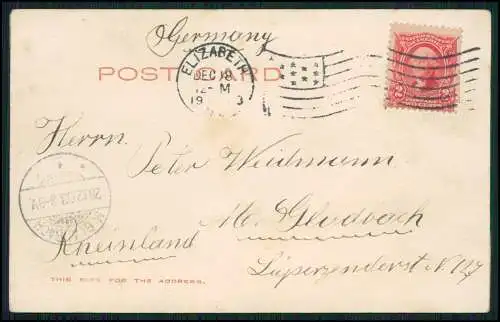 Germany
POST CARD
ELIZABETH
DEC 18
12-M
19 3
2 2
Herrn
Peter Weidmann
M. Gladbach
Rheinland
THIS SIDE FOR THE ADDRESS.